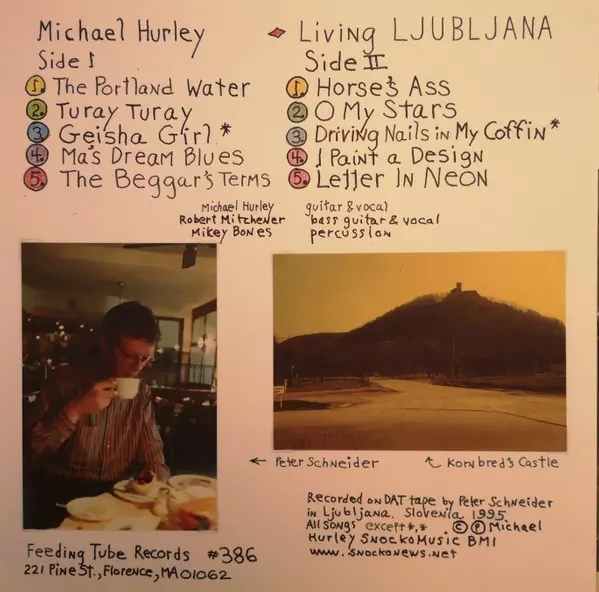 Michael Hurley
Side 1
1. The Portland Water
2. Turay Turay
3. Geisha Girl *
4. Ma's Dream Blues
5. The Beggar's Terms
Living LJUBLJANA
Side II
1. Horse's Ass
2. O My Stars
3. Driving Nails in My Coffin *
4. I Paint a Design
5. Letter In Neon
Michael Hurley guitar & vocal
Robert Mitchener bass guitar & vocal
Mikey Bones percussion
← Peter Schneider
Kornbred's Castle
Recorded on DAT tape by Peter Schneider
in Ljubljana. Slovenia 1995
All songs except *,* © ℗ Michael
Hurley SnockoMusic BMI
www.snockonews.net
Feeding Tube Records #386
221 Pine St., Florence, MA 01062